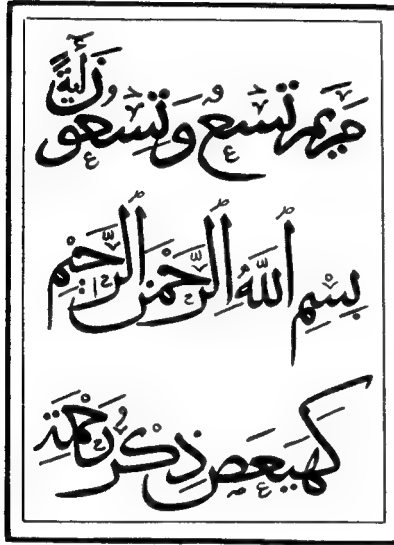 مَرْيَم تِسْعٌ وَتِسْعُونَ أٰيَةً
بِسْمِ ٱللَّهِ ٱلرَّحْمَٰنِ ٱلرَّحِيمِ
كَهيعَص ذِكْرُ رَحْمَةِ